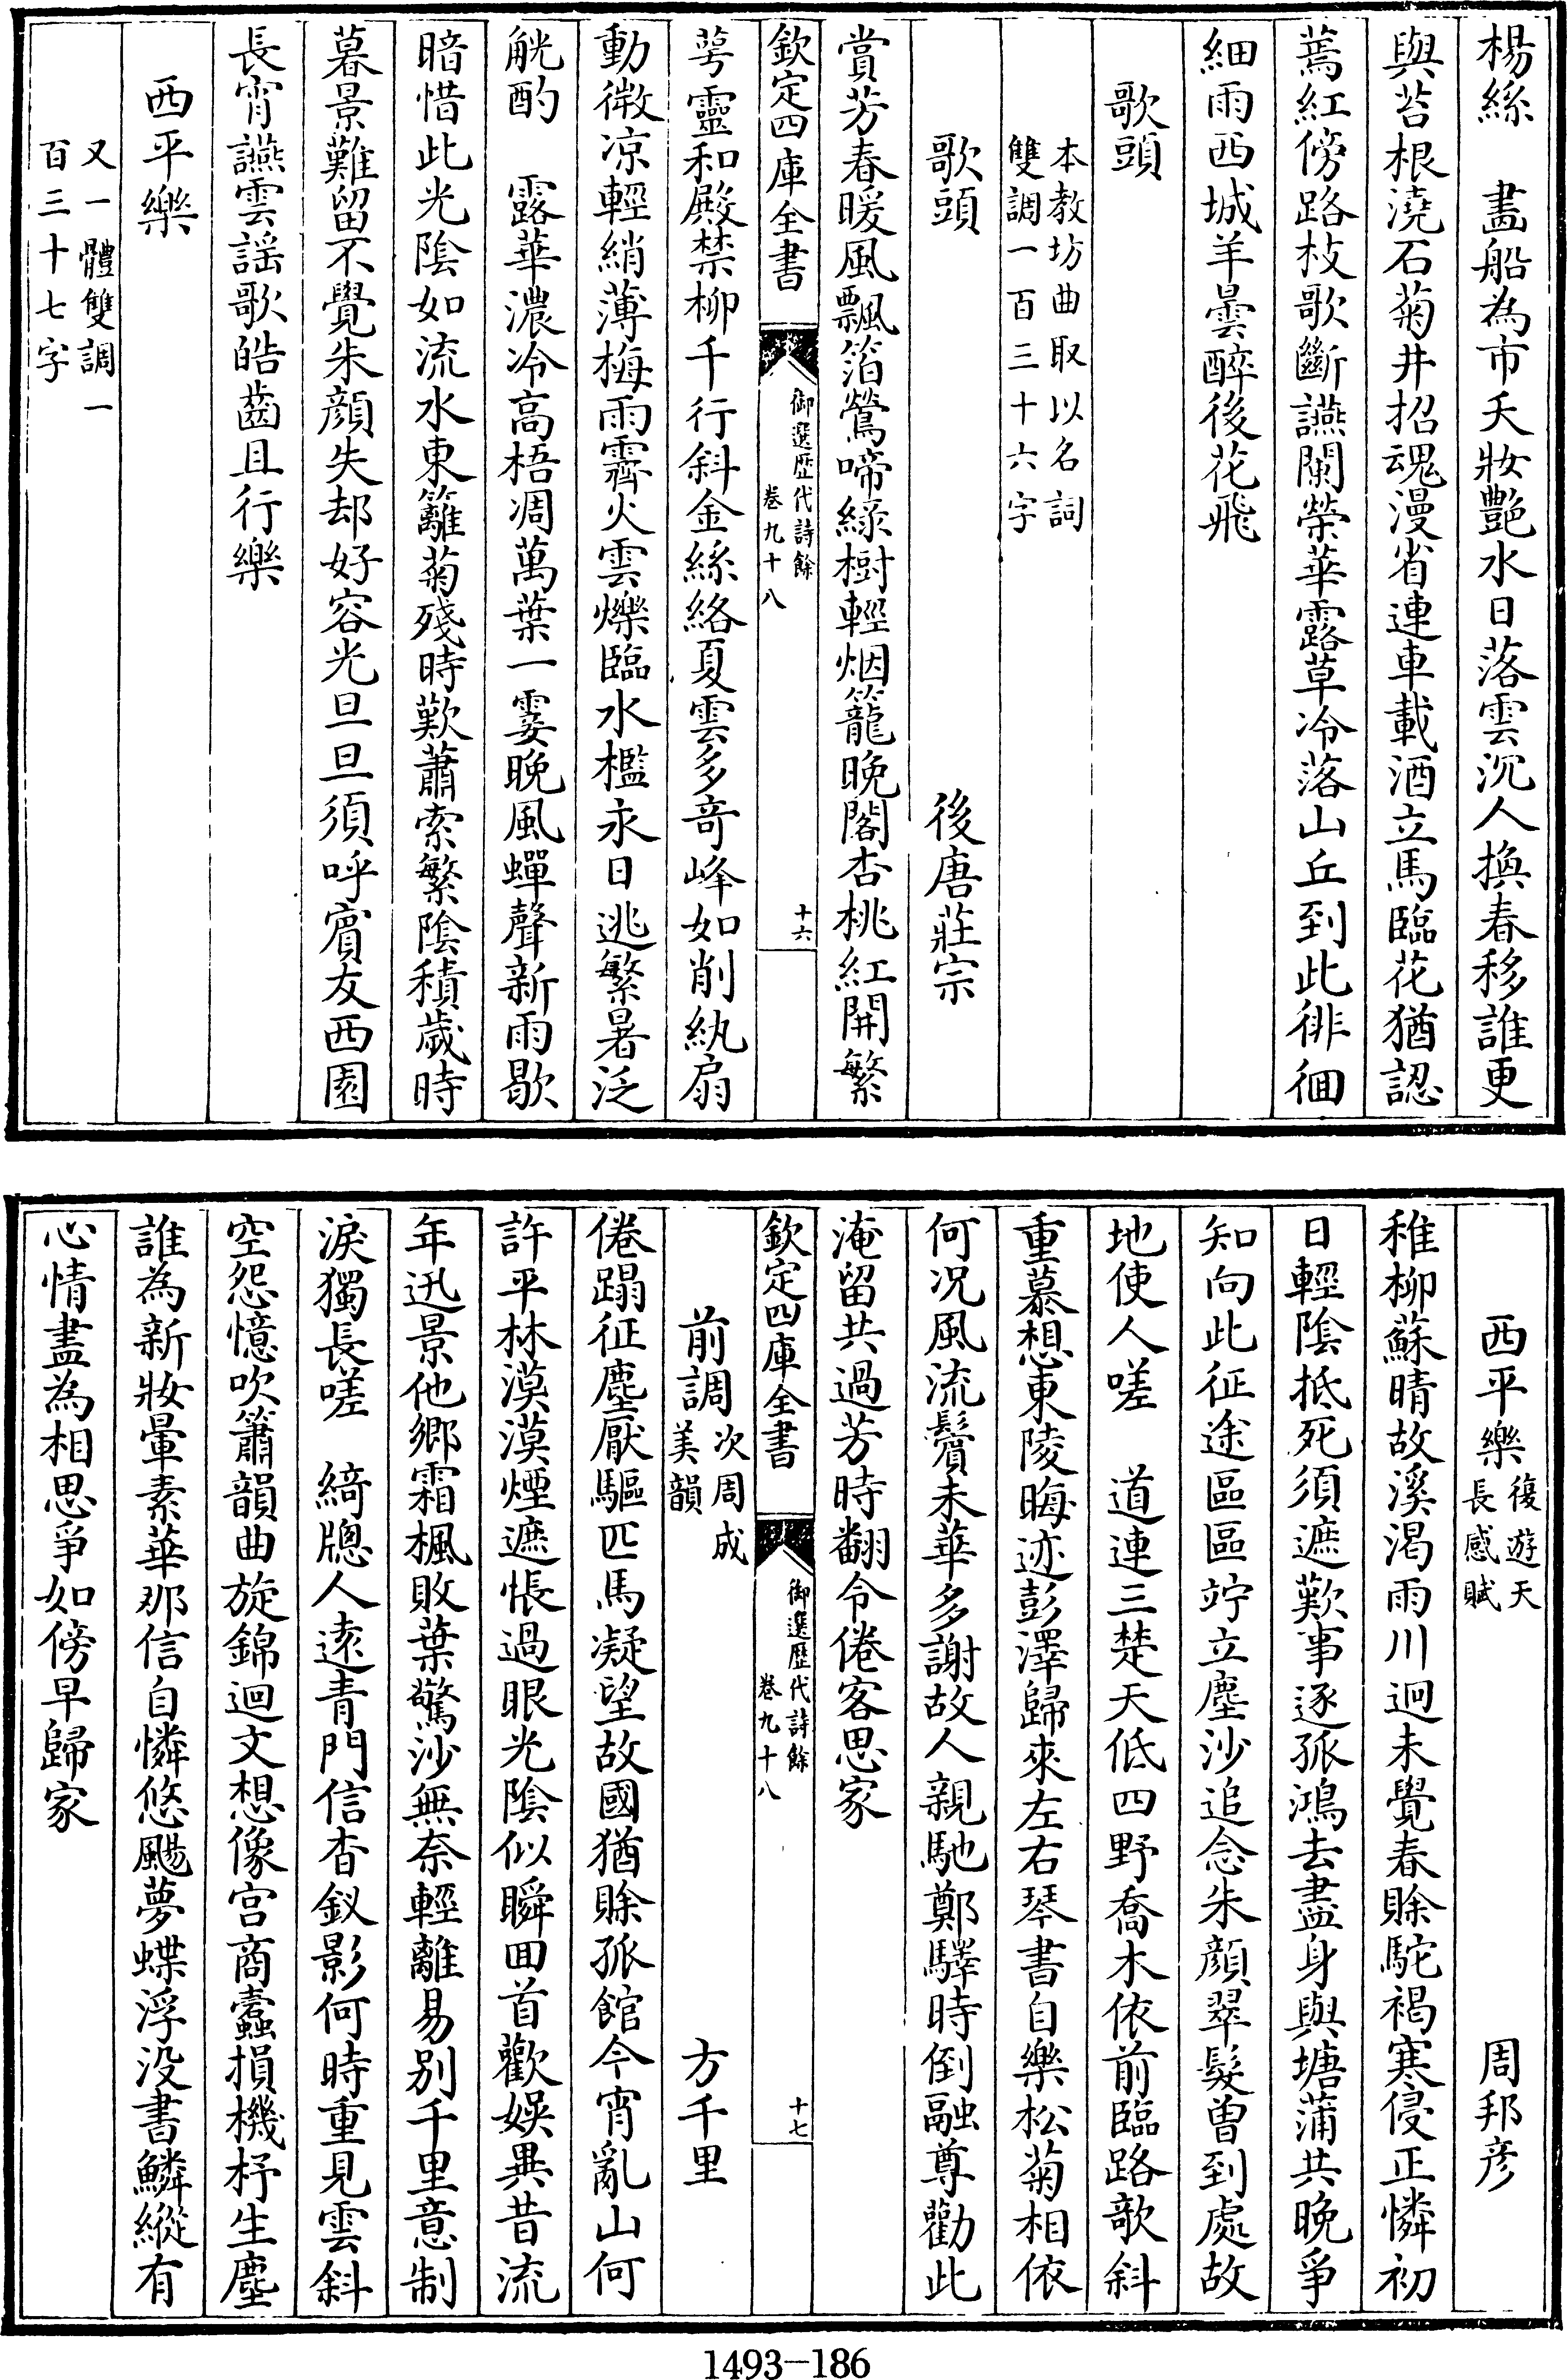 楊絲　畫船為市夭妝艶水日落雲沉人換春移誰更
與苔根澆石菊井招魂漫省連車載酒立馬臨花猶認
蔫紅傍路枝歌斷讌闌榮華露草冷落山丘到此徘徊
細雨西城羊曇醉後花飛
歌頭
本教坊曲取以名詞
雙調一百三十六字
歌頭　後唐莊宗
賞芳春暖風飄箔鶯啼綠樹輕烟籠晚閣杏桃紅開繁
欽定四庫全書
御選歷代詩餘
卷九十八
十六
萼靈和殿禁柳千行斜金絲絡夏雲多竒峰如削紈扇
動微凉輕綃薄梅雨霽火雲爍臨水檻永日逃繁暑泛
觥酌　露華濃冷高梧凋萬葉一霎晚風蟬聲新雨歇
暗惜此光陰如流水東籬菊殘時歎蕭索繁陰積歲時
暮景難留不覺朱顔失却好容光旦旦須呼賓友西園
長宵讌雲謡歌皓齒且行樂
西平樂
又一體雙調一
百三十七字
西平樂
復遊天
長感賦
周邦彦
稚柳蘇晴故溪渴雨川迥未覺春賒駝褐寒侵正憐初
日輕陰抵死須遮歎事逐孤鴻去盡身與塘蒲共晚爭
知向此征途區區竚立塵沙追念朱顔翠髮曽到處故
地使人嗟　道連三楚天低四野喬木依前臨路欹斜
重慕想東陵晦迹彭澤歸來左右琴書自樂松菊相依
何况風流鬢未華多謝故人親馳鄭驛時倒融尊勸此
淹留共過芳時翻令倦客思家
欽定四庫全書
御選歷代詩餘
卷九十八
十七
前調
次周成
美韻
方千里
倦蹋征塵厭驅匹馬凝望故國猶賒孤館今宵亂山何
許平林漠漠煙遮悵過眼光陰似瞬囬首歡娛異昔流
年迅景他鄉霜楓敗葉驚沙無奈輕離易别千里意制
淚獨長嗟　綺牕人遠青門信杳釵影何時重見雲斜
空怨憶吹簫韻曲旋錦迴文想像宫商蠹損機杼生塵
誰為新妝暈素華那信自憐悠颺夢蝶浮没書鱗縱有
心情盡為相思爭如傍早歸家
1493-186